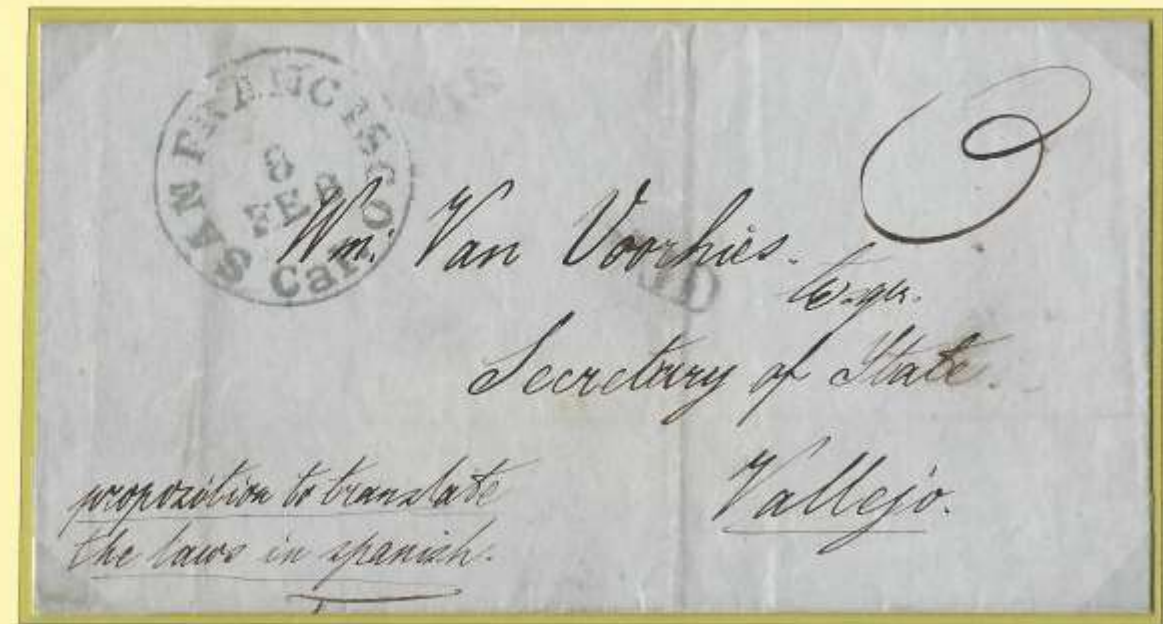 SAN FRANCISCO
8
FEB
Cal.
Wm. Van Voorhies.
Esqr.
Secretary of State.
Vallejo.
proposition to translate
the laws in spanish.